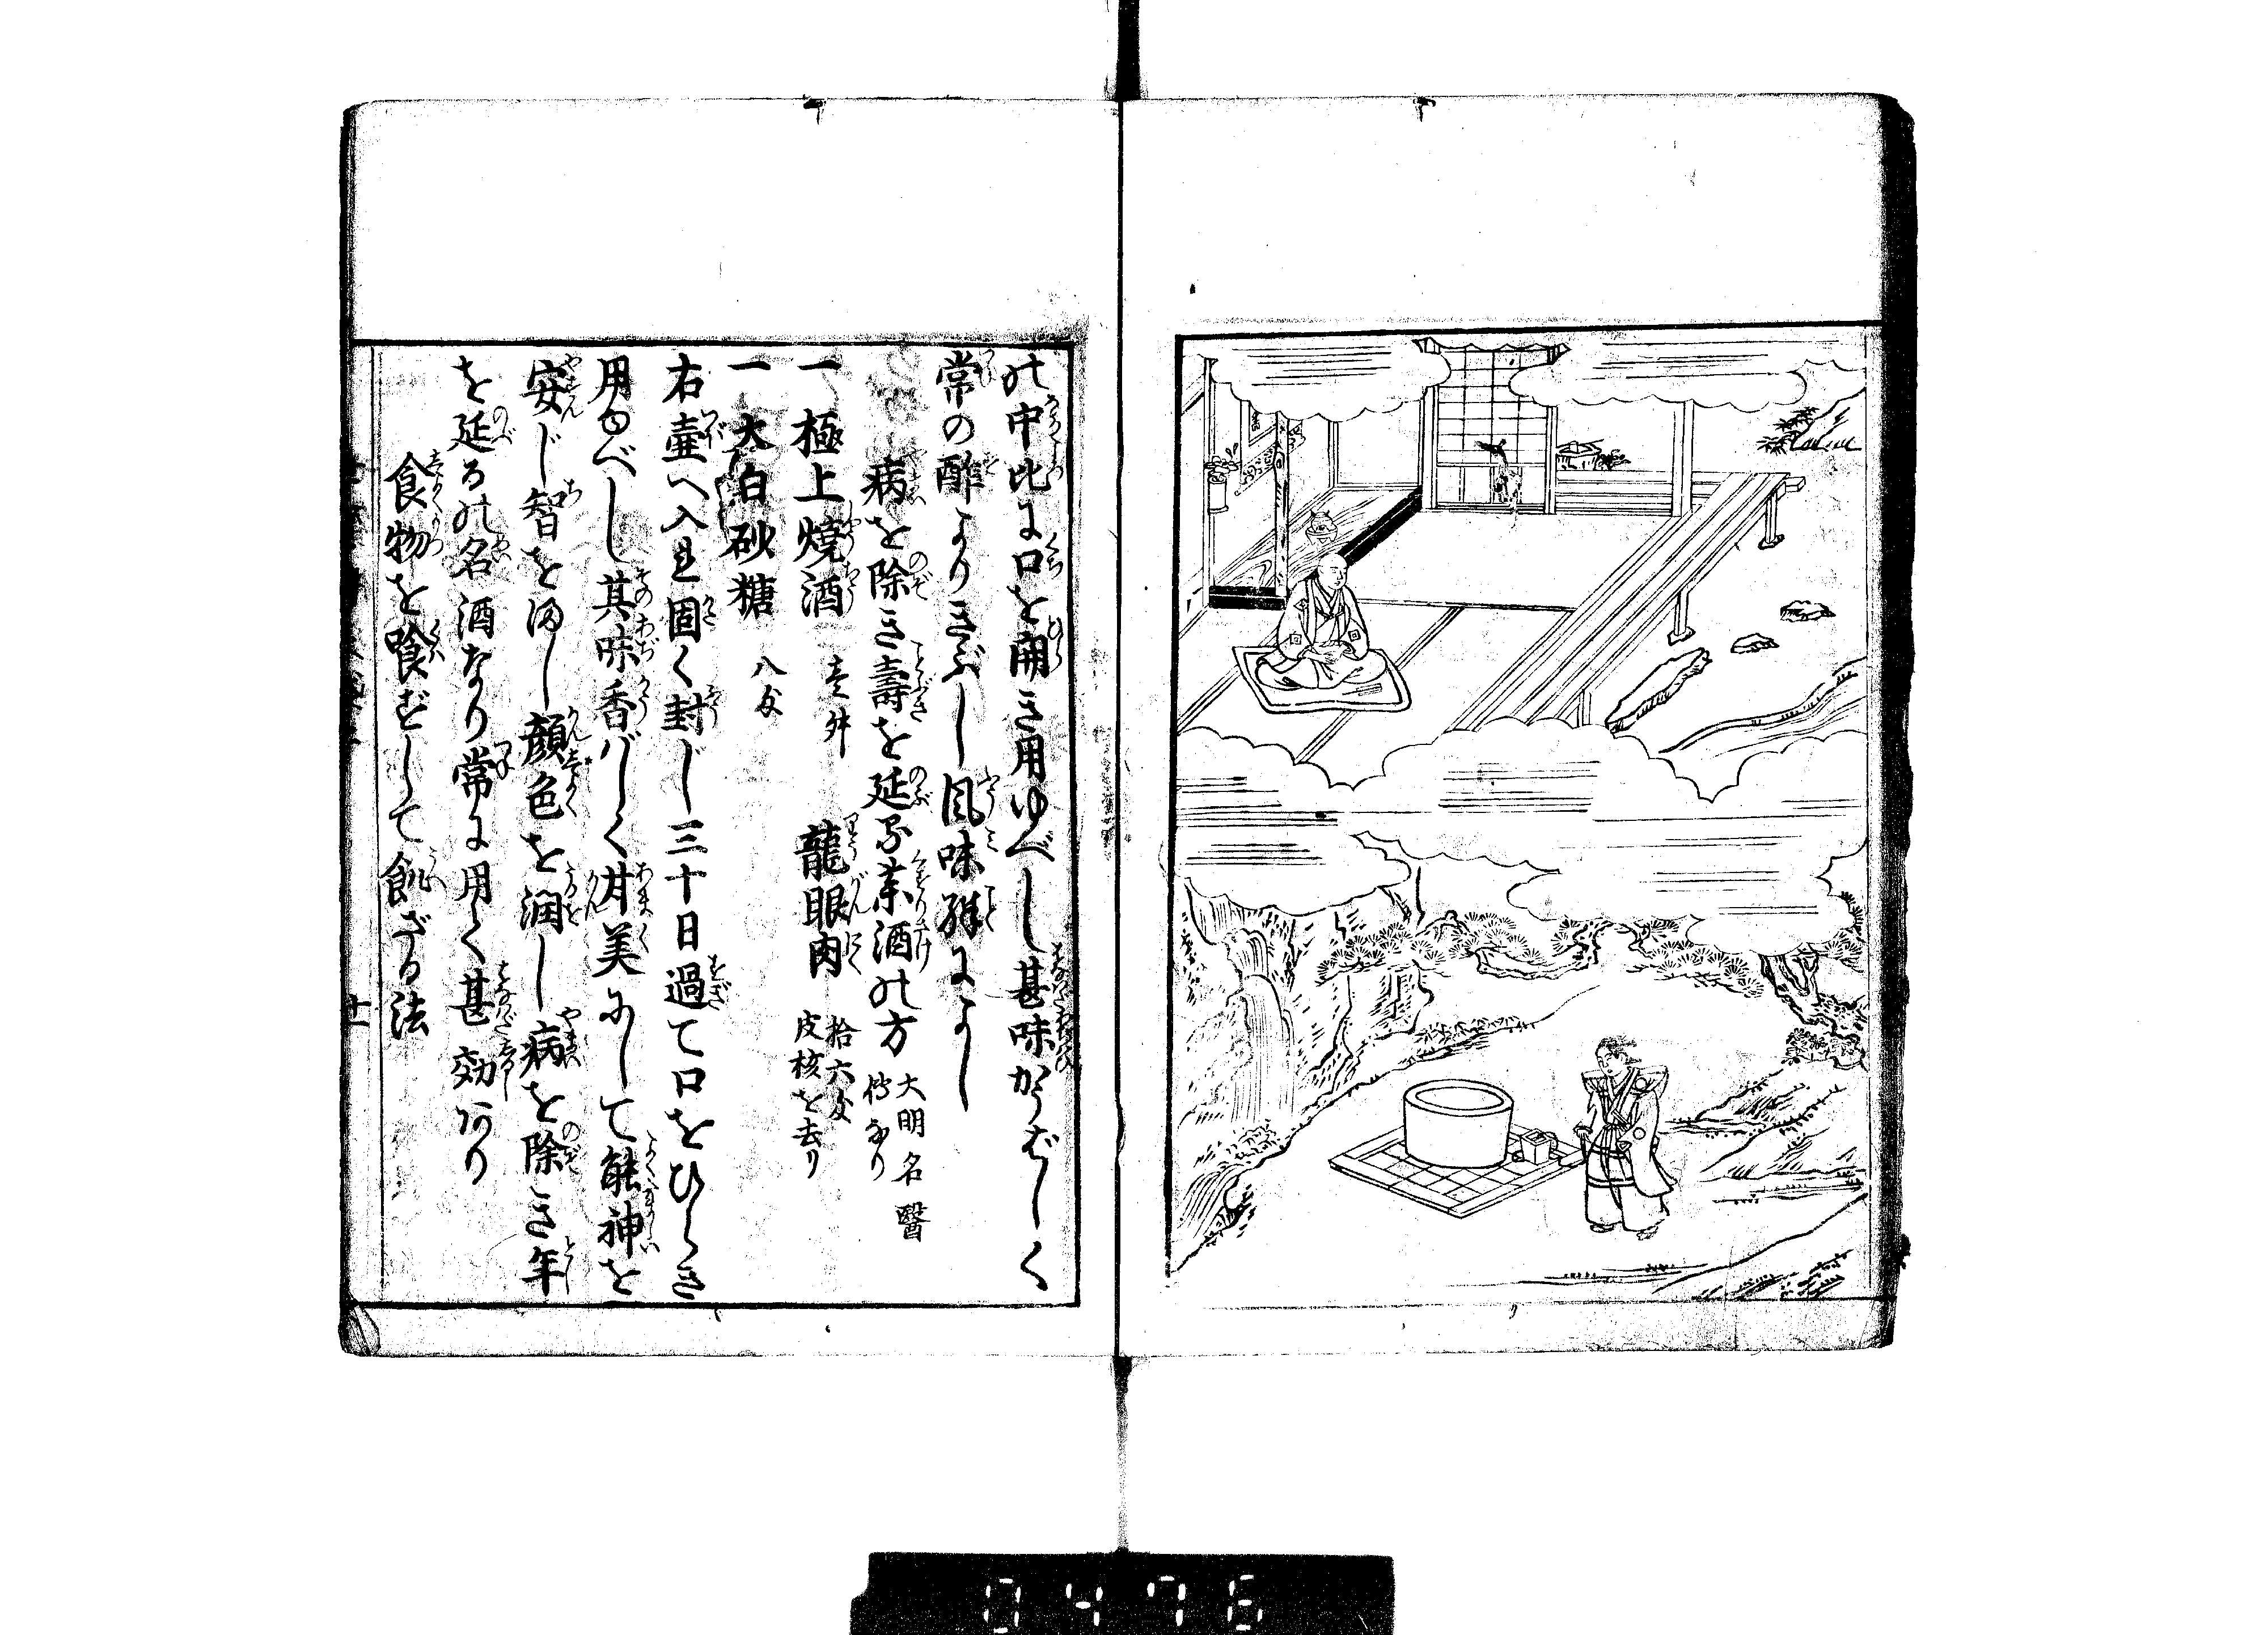 の中比に口を開き用ゆべし甚味かうばしく
常の酢よりきぶし風味殊によし
病を除き壽を延る薬酒の方 大明名醫
傳なり
一極上焼酒 壱舛 龍眼肉 拾六匁
皮核を去り
一大白砂糖 八匁
右壷へ入れ固く封じ三十日過て口をひらき
用ゆべし其味香ばしく甘美にして能神を
安じ智をましし顔色を潤し病を除き年
を延るの名酒なり常に用く甚効あり
食物を喰ずして飢ざる法
十一
0476